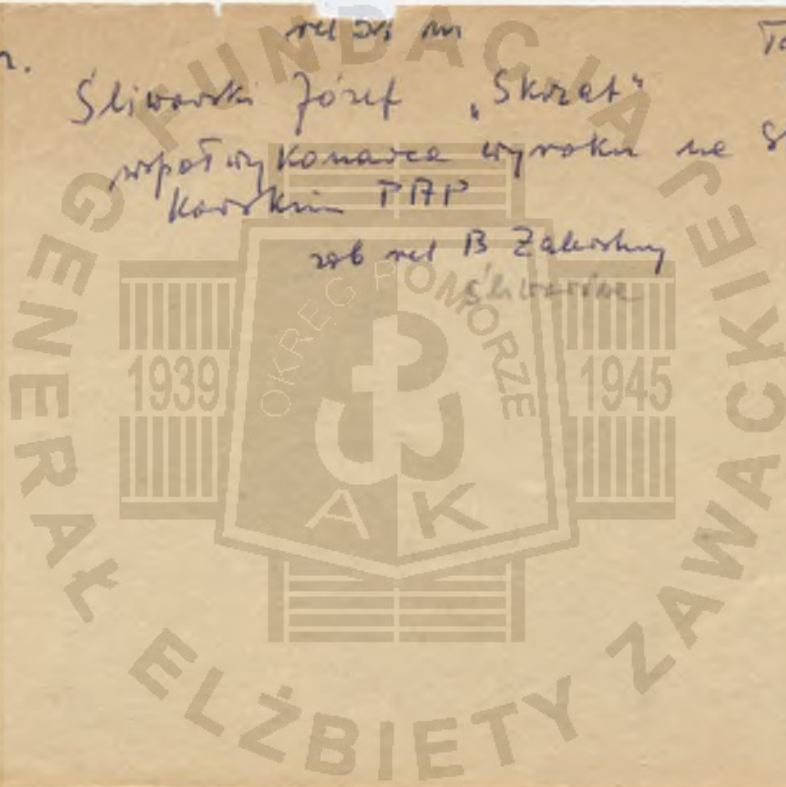 Śliwowski Józef "Skrzat"
współwykonawca wyroku na S
kowskim PAP
zob rel B Zakoshny
FUNDACJA
GENERAŁ ELŻBIETY ZAWACKIEJ
OKRĘG POMORZE
1939
1945
AK